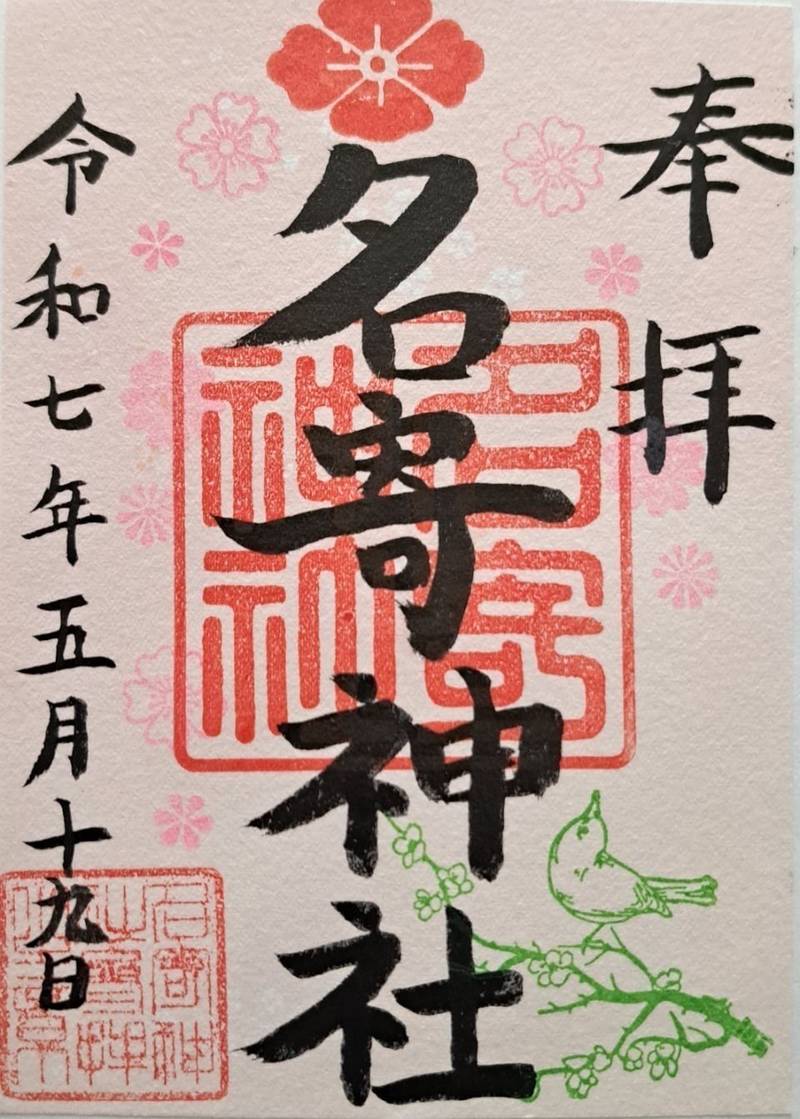 奉拝
名寄神社
令和七年五月十九日
名寄神社